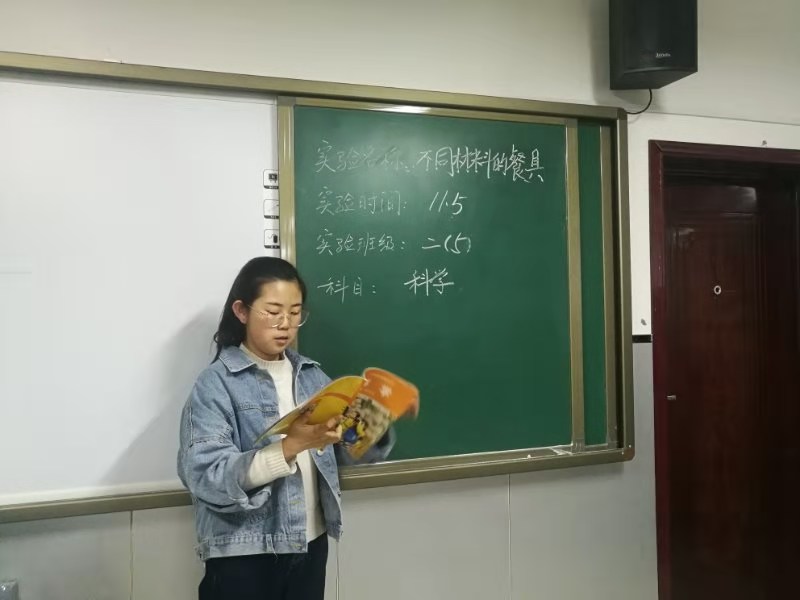 实验名称：不同材料的餐具
实验时间：11.5
实验班级：二(5)
科目：科学